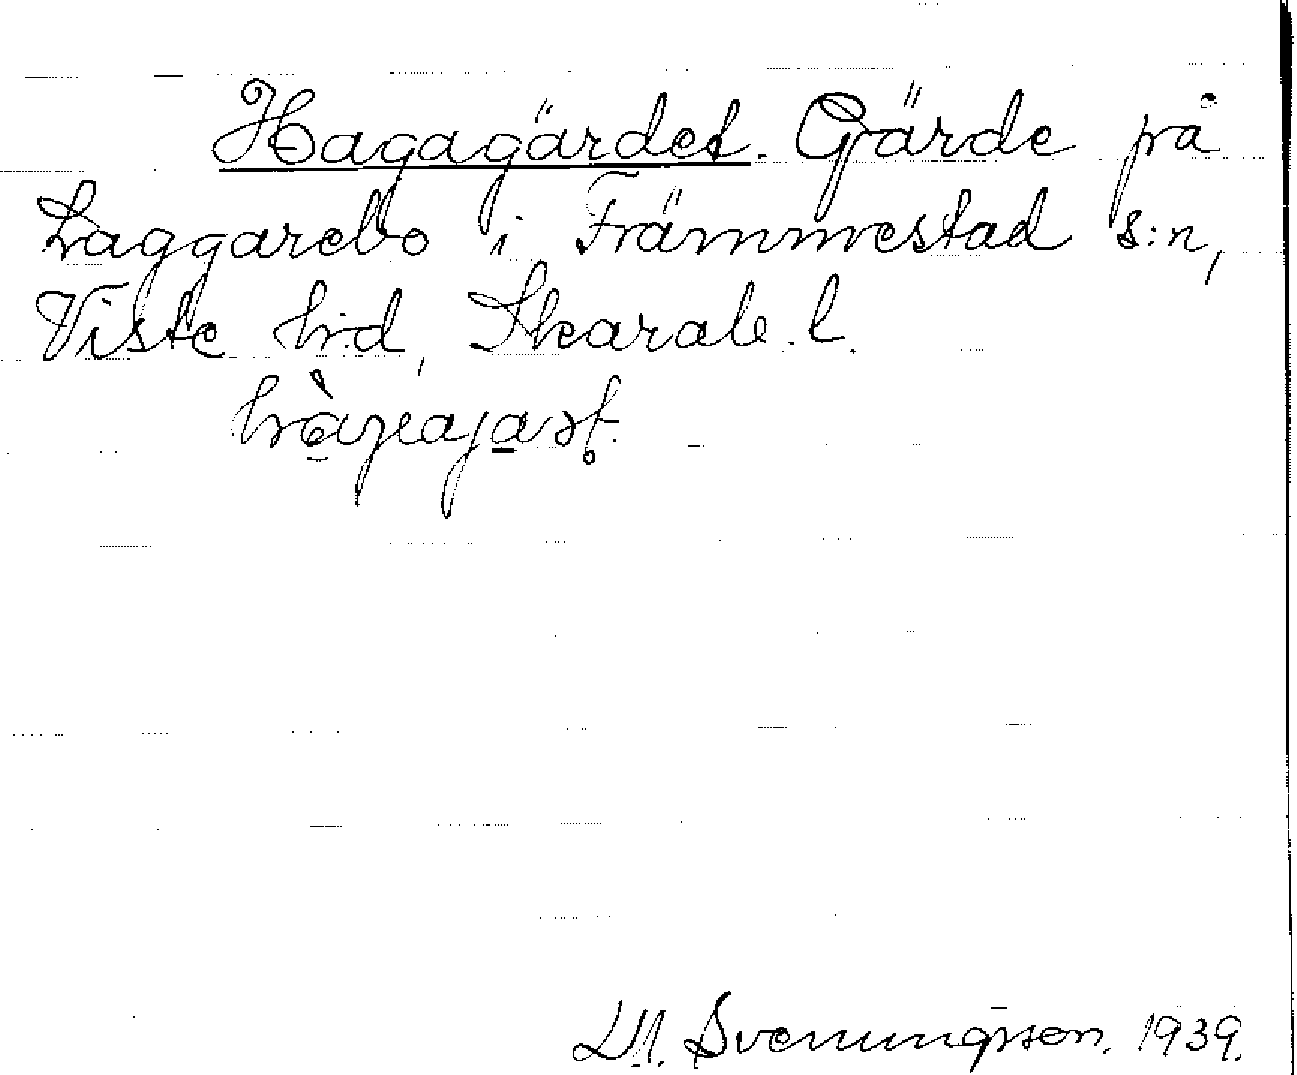 Hagagärdet. Gärde på
Laggarebo i Främmestad s:n,
Viste hd, Skarab. l.
M. Svenungsson. 1939.